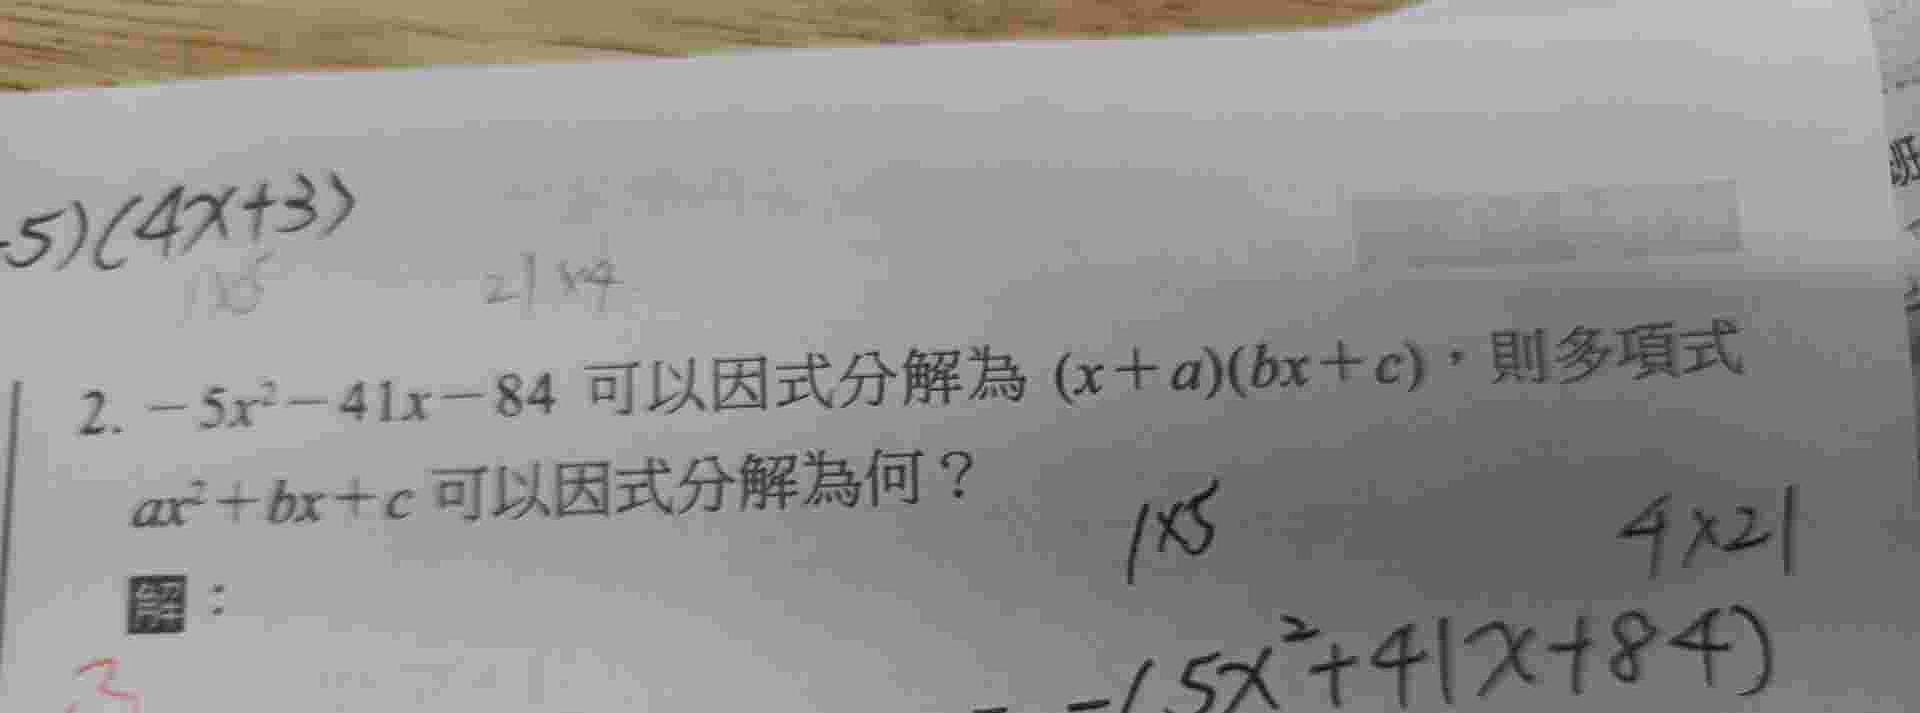 -5)(4x+3)
1x5 21x4
2. －5x²－41x－84 可以因式分解為 (x＋a)(bx＋c)，則多項式
ax²＋bx＋c 可以因式分解為何？
1x5 4x21
解：
-(5x²+41x+84)
3
班